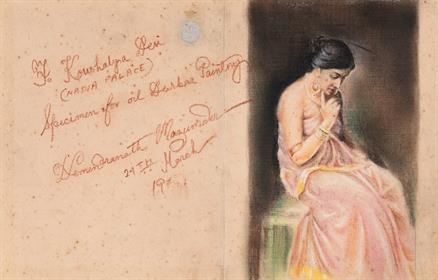 To Koushalya Devi
(NADIA PALACE)
Specimen for oil Durbar Painting
Hemendranath Mazumdar
29th March
19